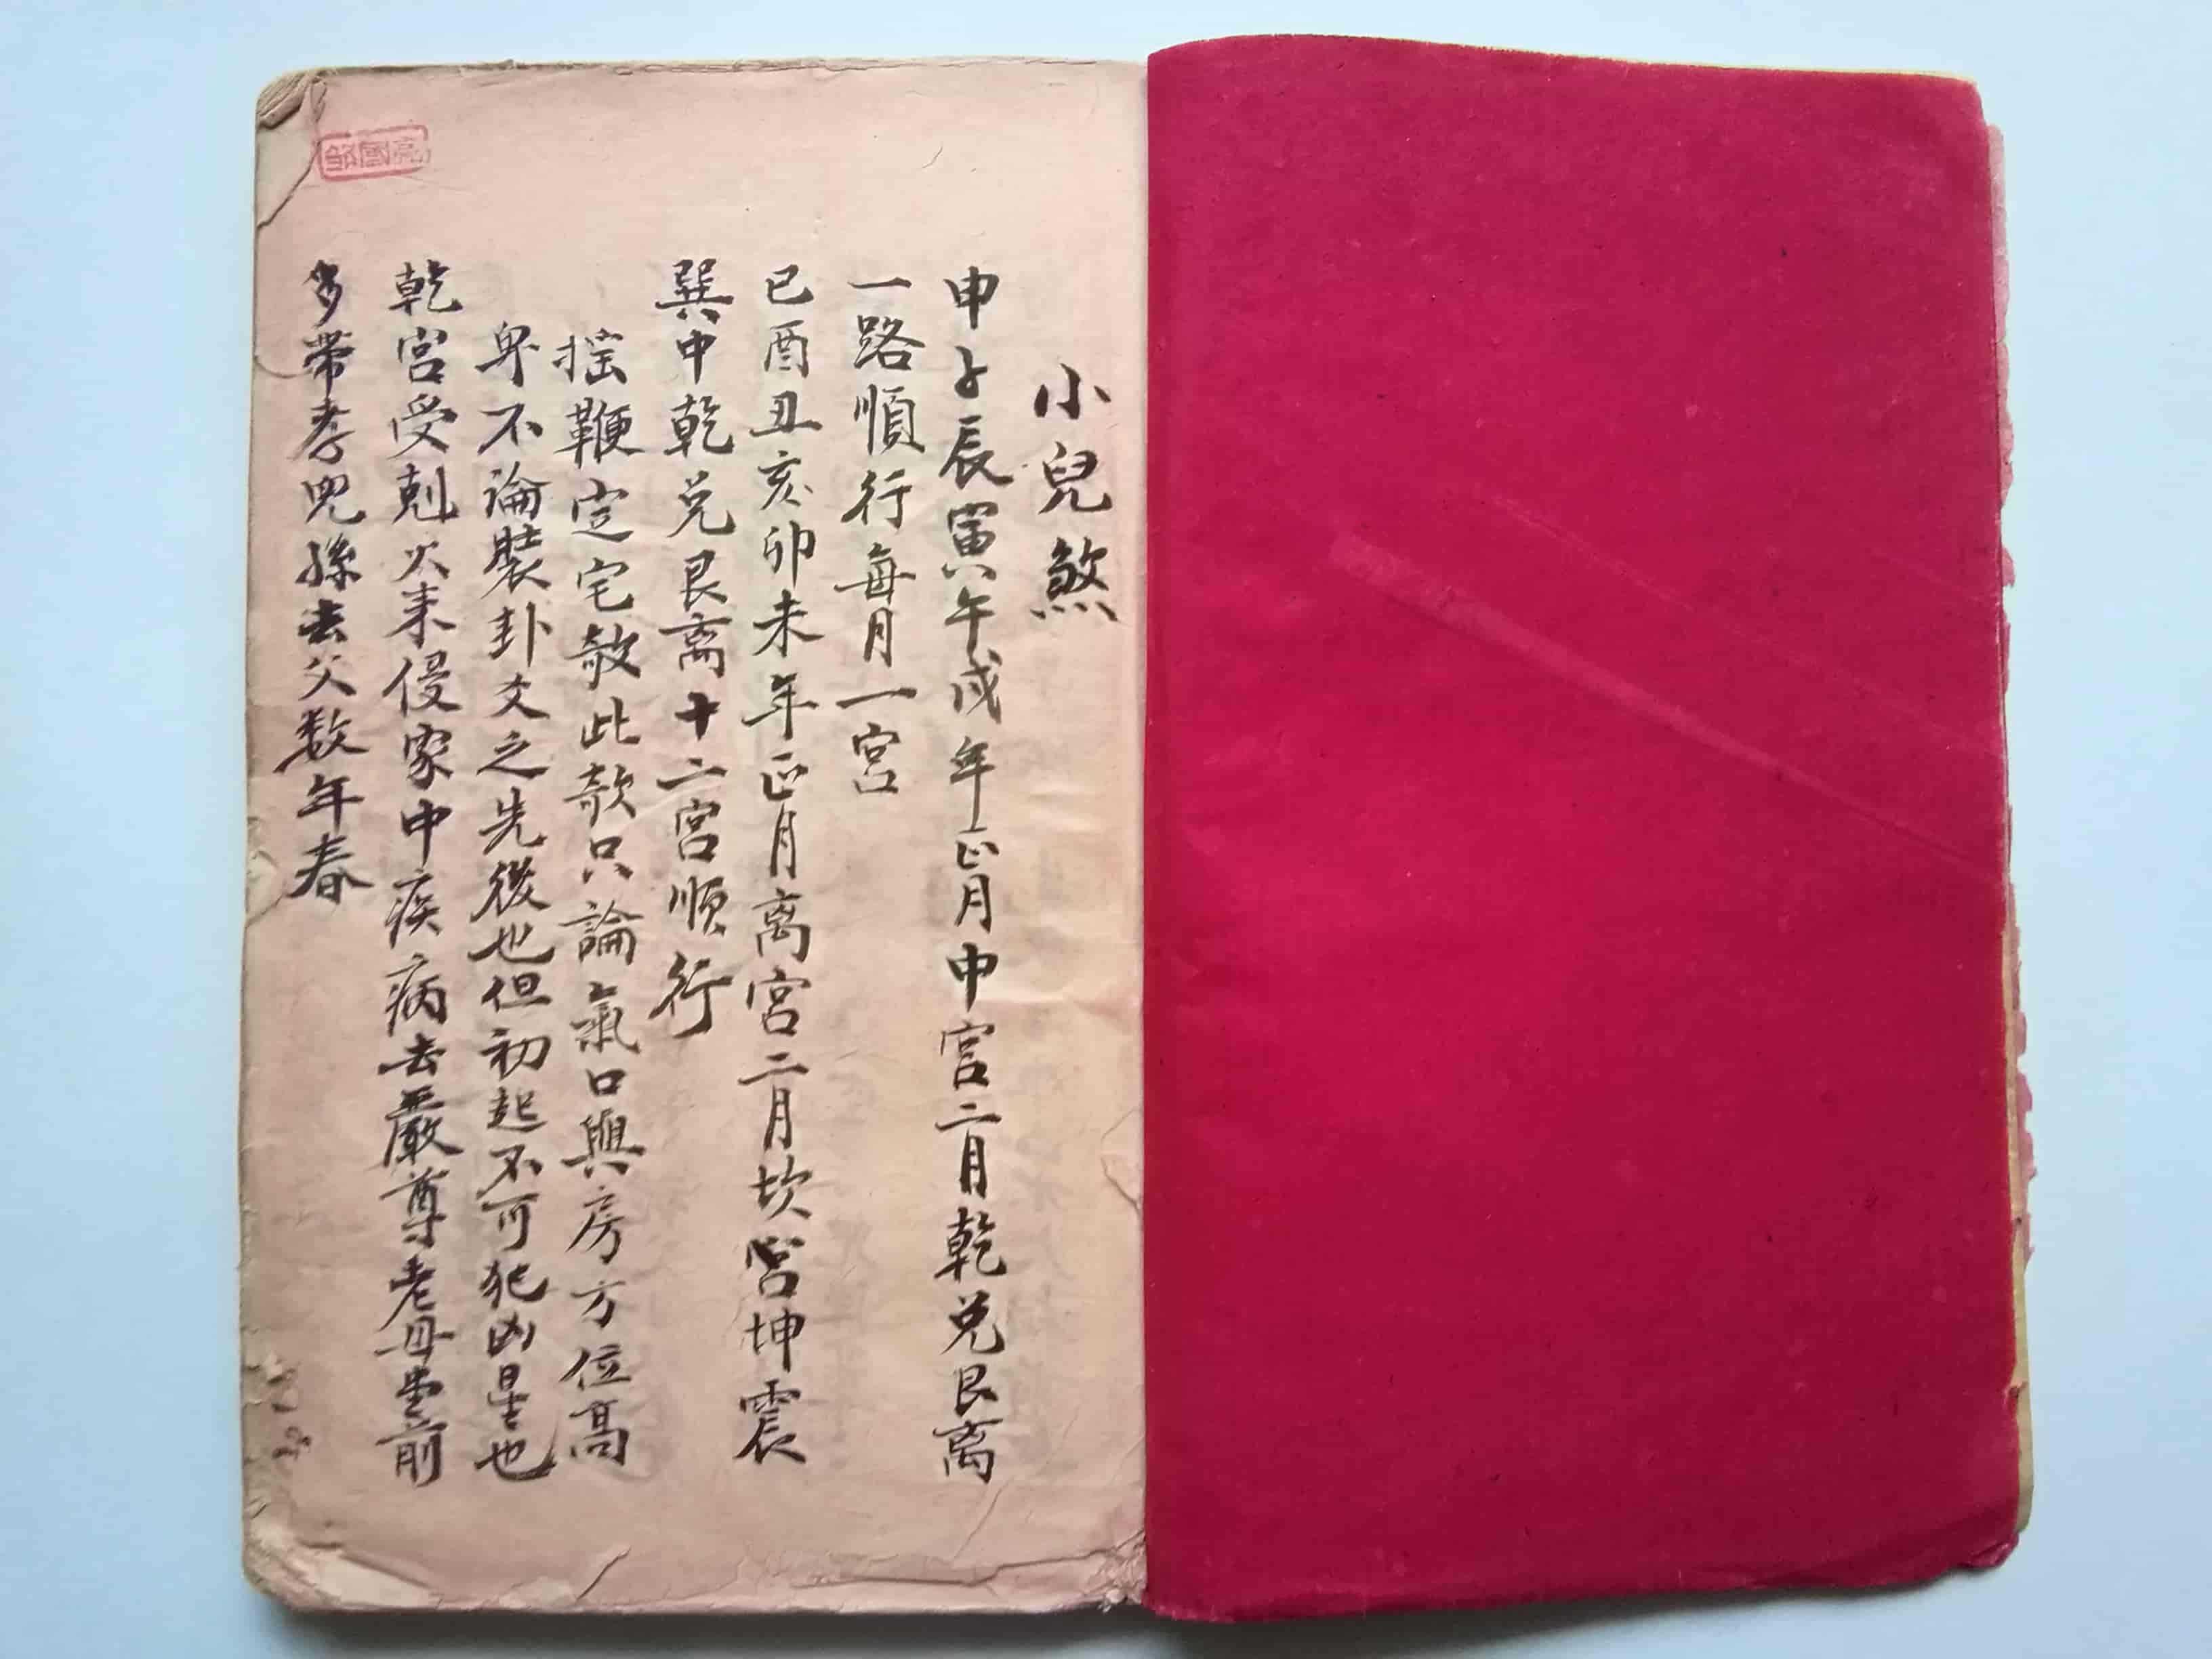 小兒煞
申子辰寅午戌年正月中宮二月乾兌艮离
一路順行每月一宮
巳酉丑亥卯未年正月离宮二月坎宮坤震
巽中乾兌艮离十二宮順行
摇鞭定宅敨此欵只論氣口與房方位高
卑不論裝卦爻之先後也但初起不可犯凶星也
乾宮受剋火来侵家中疾病去嚴尊老母堂前
多帶孝児孫去父数年春
邹國亮